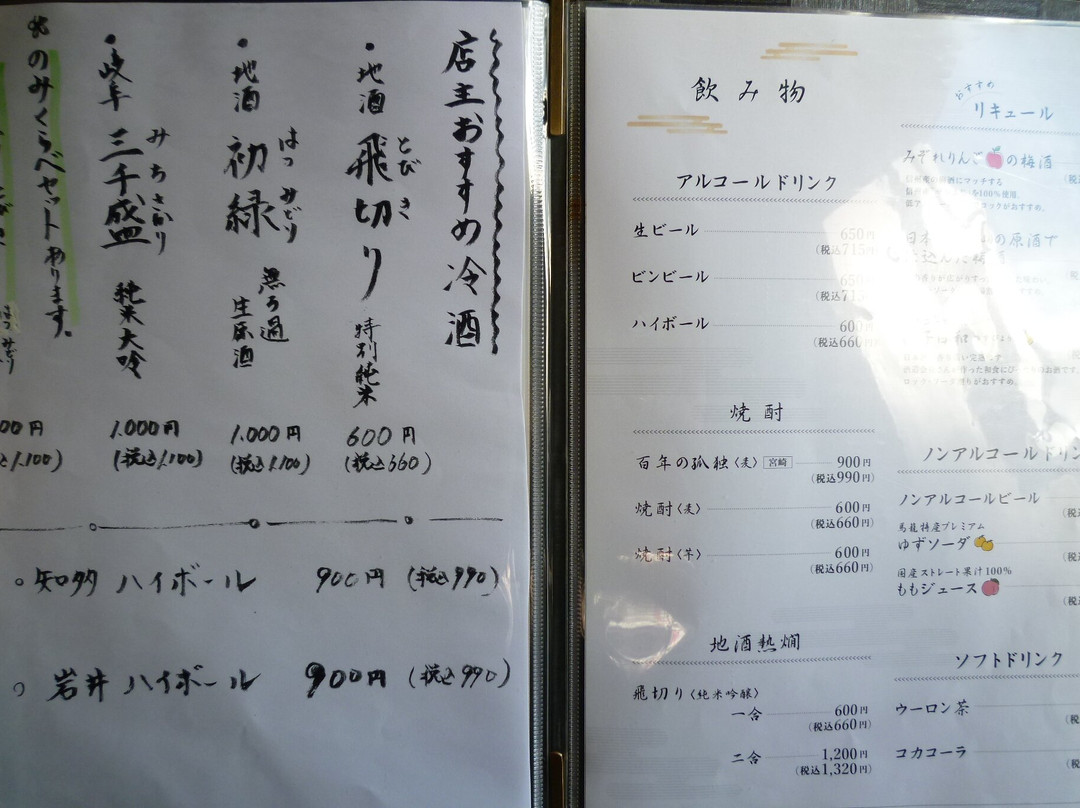 店主おすすめ冷酒
・地酒 飛切り 特別純米
とびきり
600円
(税込660)
・地酒 初緑 無ろ過生原酒
はつみどり
1.000円
(税込1.100)
・岐阜 三千盛 純米大吟
みちさかり
1.000円
(税込1.100)
※のみくらべセットあります。
はつみどり
00円
1.100)
。知多 ハイボール 900円 (税込990)
。岩井 ハイボール 900円 (税込990)
飲み物
アルコールドリンク
生ビール 650円
(税込715円)
ビンビール 650
(税込715
ハイボール 600円
(税込660
焼酎
百年の孤独〈麦〉 宮崎 900円
(税込990円)
焼酎〈麦〉 600円
(税込660円)
焼酎〈芋〉 600円
(税込660円)
地酒熱燗
飛切り〈純米吟醸〉
一合 600円
(税込660円)
二合 1,200円
(税込1,320円)
おすすめ
リキュール
みぞれりんごの梅酒
(税
の原酒で
ロックがおすすめ。
ノンアルコールドリン
ノンアルコールビール
(税
馬籠特産プレミアム
ゆずソーダ
(税
国産ストレート果汁100%
ももジュース
(税
ソフトドリンク
ウーロン茶
(税
コカコーラ
(税